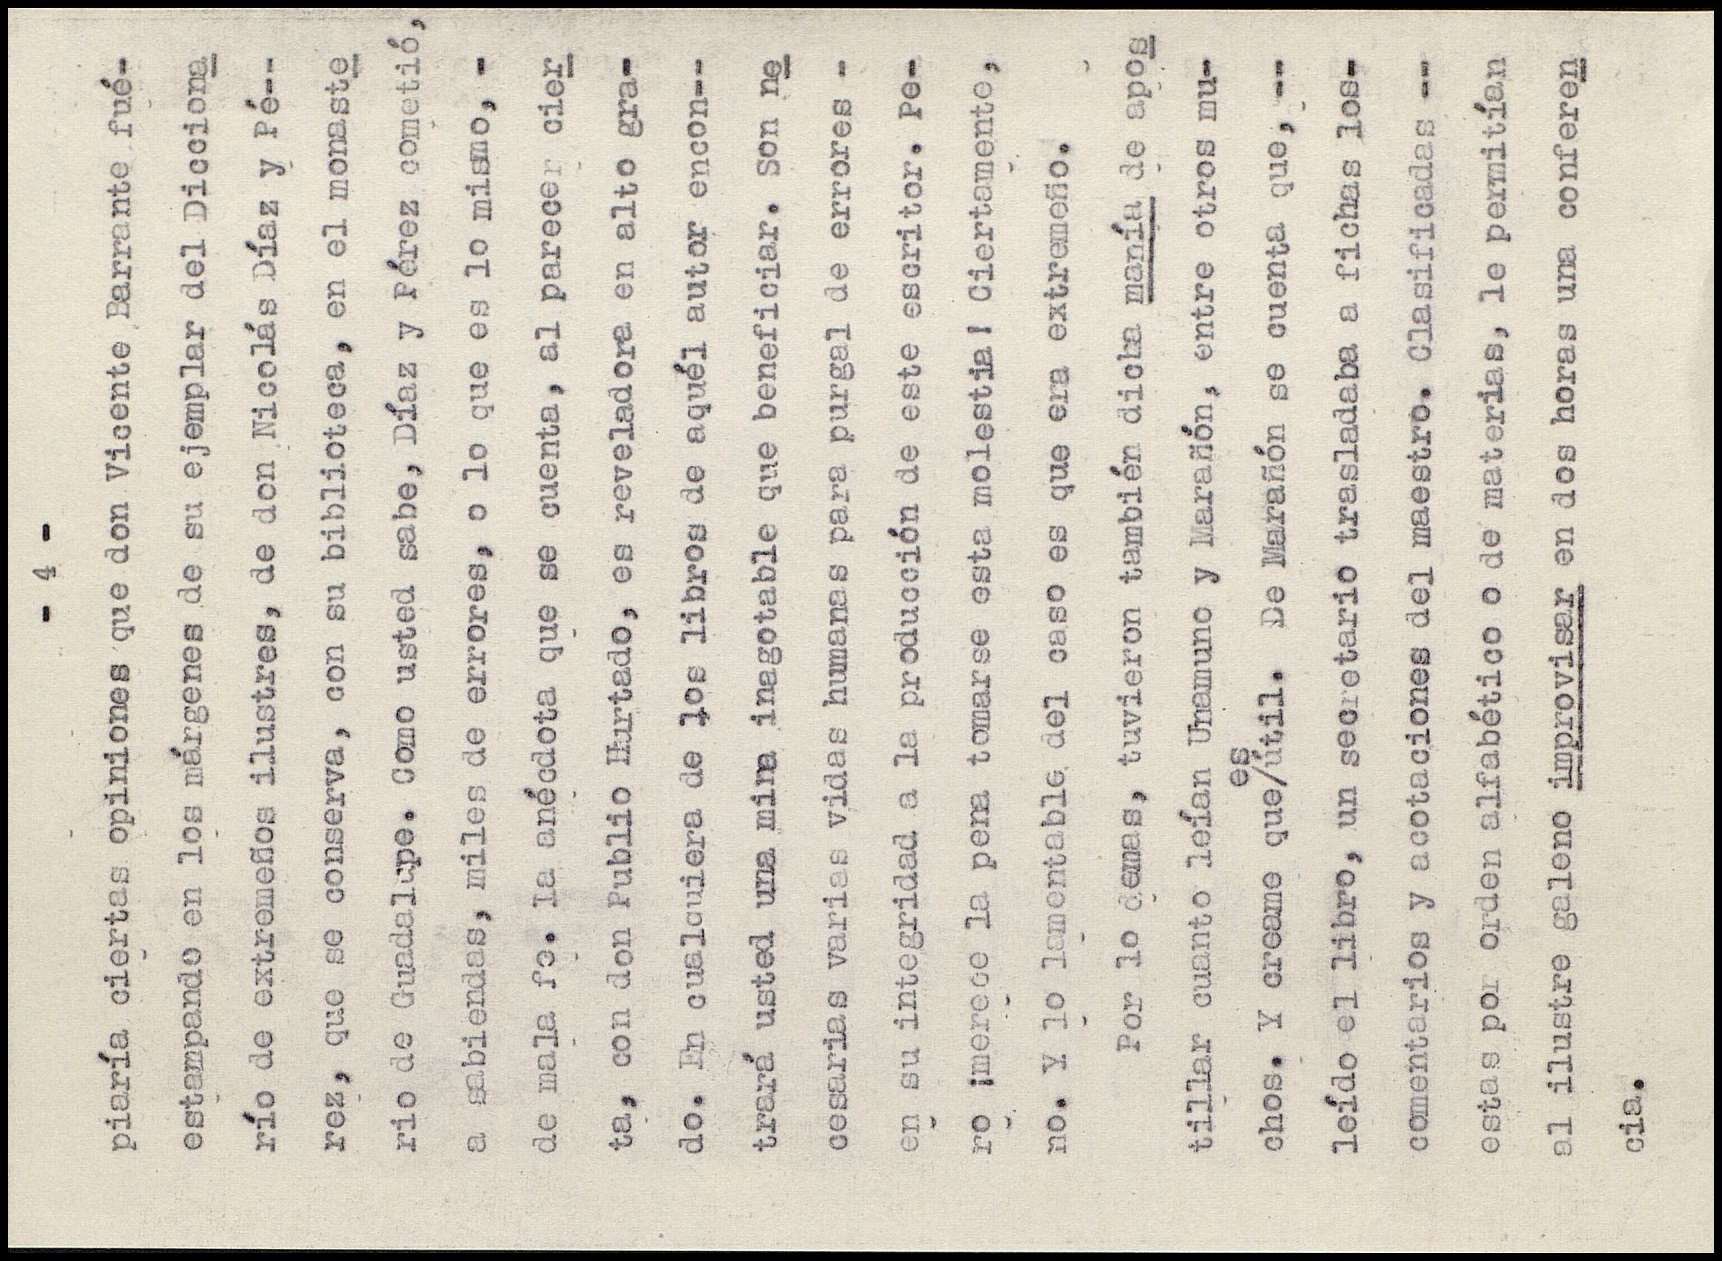 - 4 -
piaría ciertas opiniones que don Vicente Barrante fué-
estampando en los márgenes de su ejemplar del Dicciona
río de extremeños ilustres, de don Nicolás Díaz y Pé--
rez, que se conserva, con su biblioteca, en el monaste
rio de Guadalupe. Como usted sabe, Díaz y Pérez cometió,
a sabiendas, miles de errores, o lo que es lo mismo, -
de mala fe. La anécdota que se cuenta, al parecer cier
ta, con don Publio Hurtado, es reveladora en alto gra-
do. En cualquiera de los libros de aquél autor encon--
trará usted una mina inagotable que beneficiar. Son ne
cesarias varias vidas humanas para purgal de errores -
en su integridad a la producción de este escritor. Pe-
ro ¡merece la pena tomarse esta molestia! Ciertamente,
no. Y lo lamentable del caso es que era extremeño.
Por lo demas, tuvieron también dicha manía de apos
tillar cuanto leían Unamuno y Marañón, entre otros mu-
chos. Y creame que/es útil. De Marañón se cuenta que, --
leído el libro, un secretario trasladaba a fichas los-
comentarios y acotaciones del maestro. Clasificadas --
estas por orden alfabético o de materias, le permitían
al ilustre galeno improvisar en dos horas una conferen
cia.